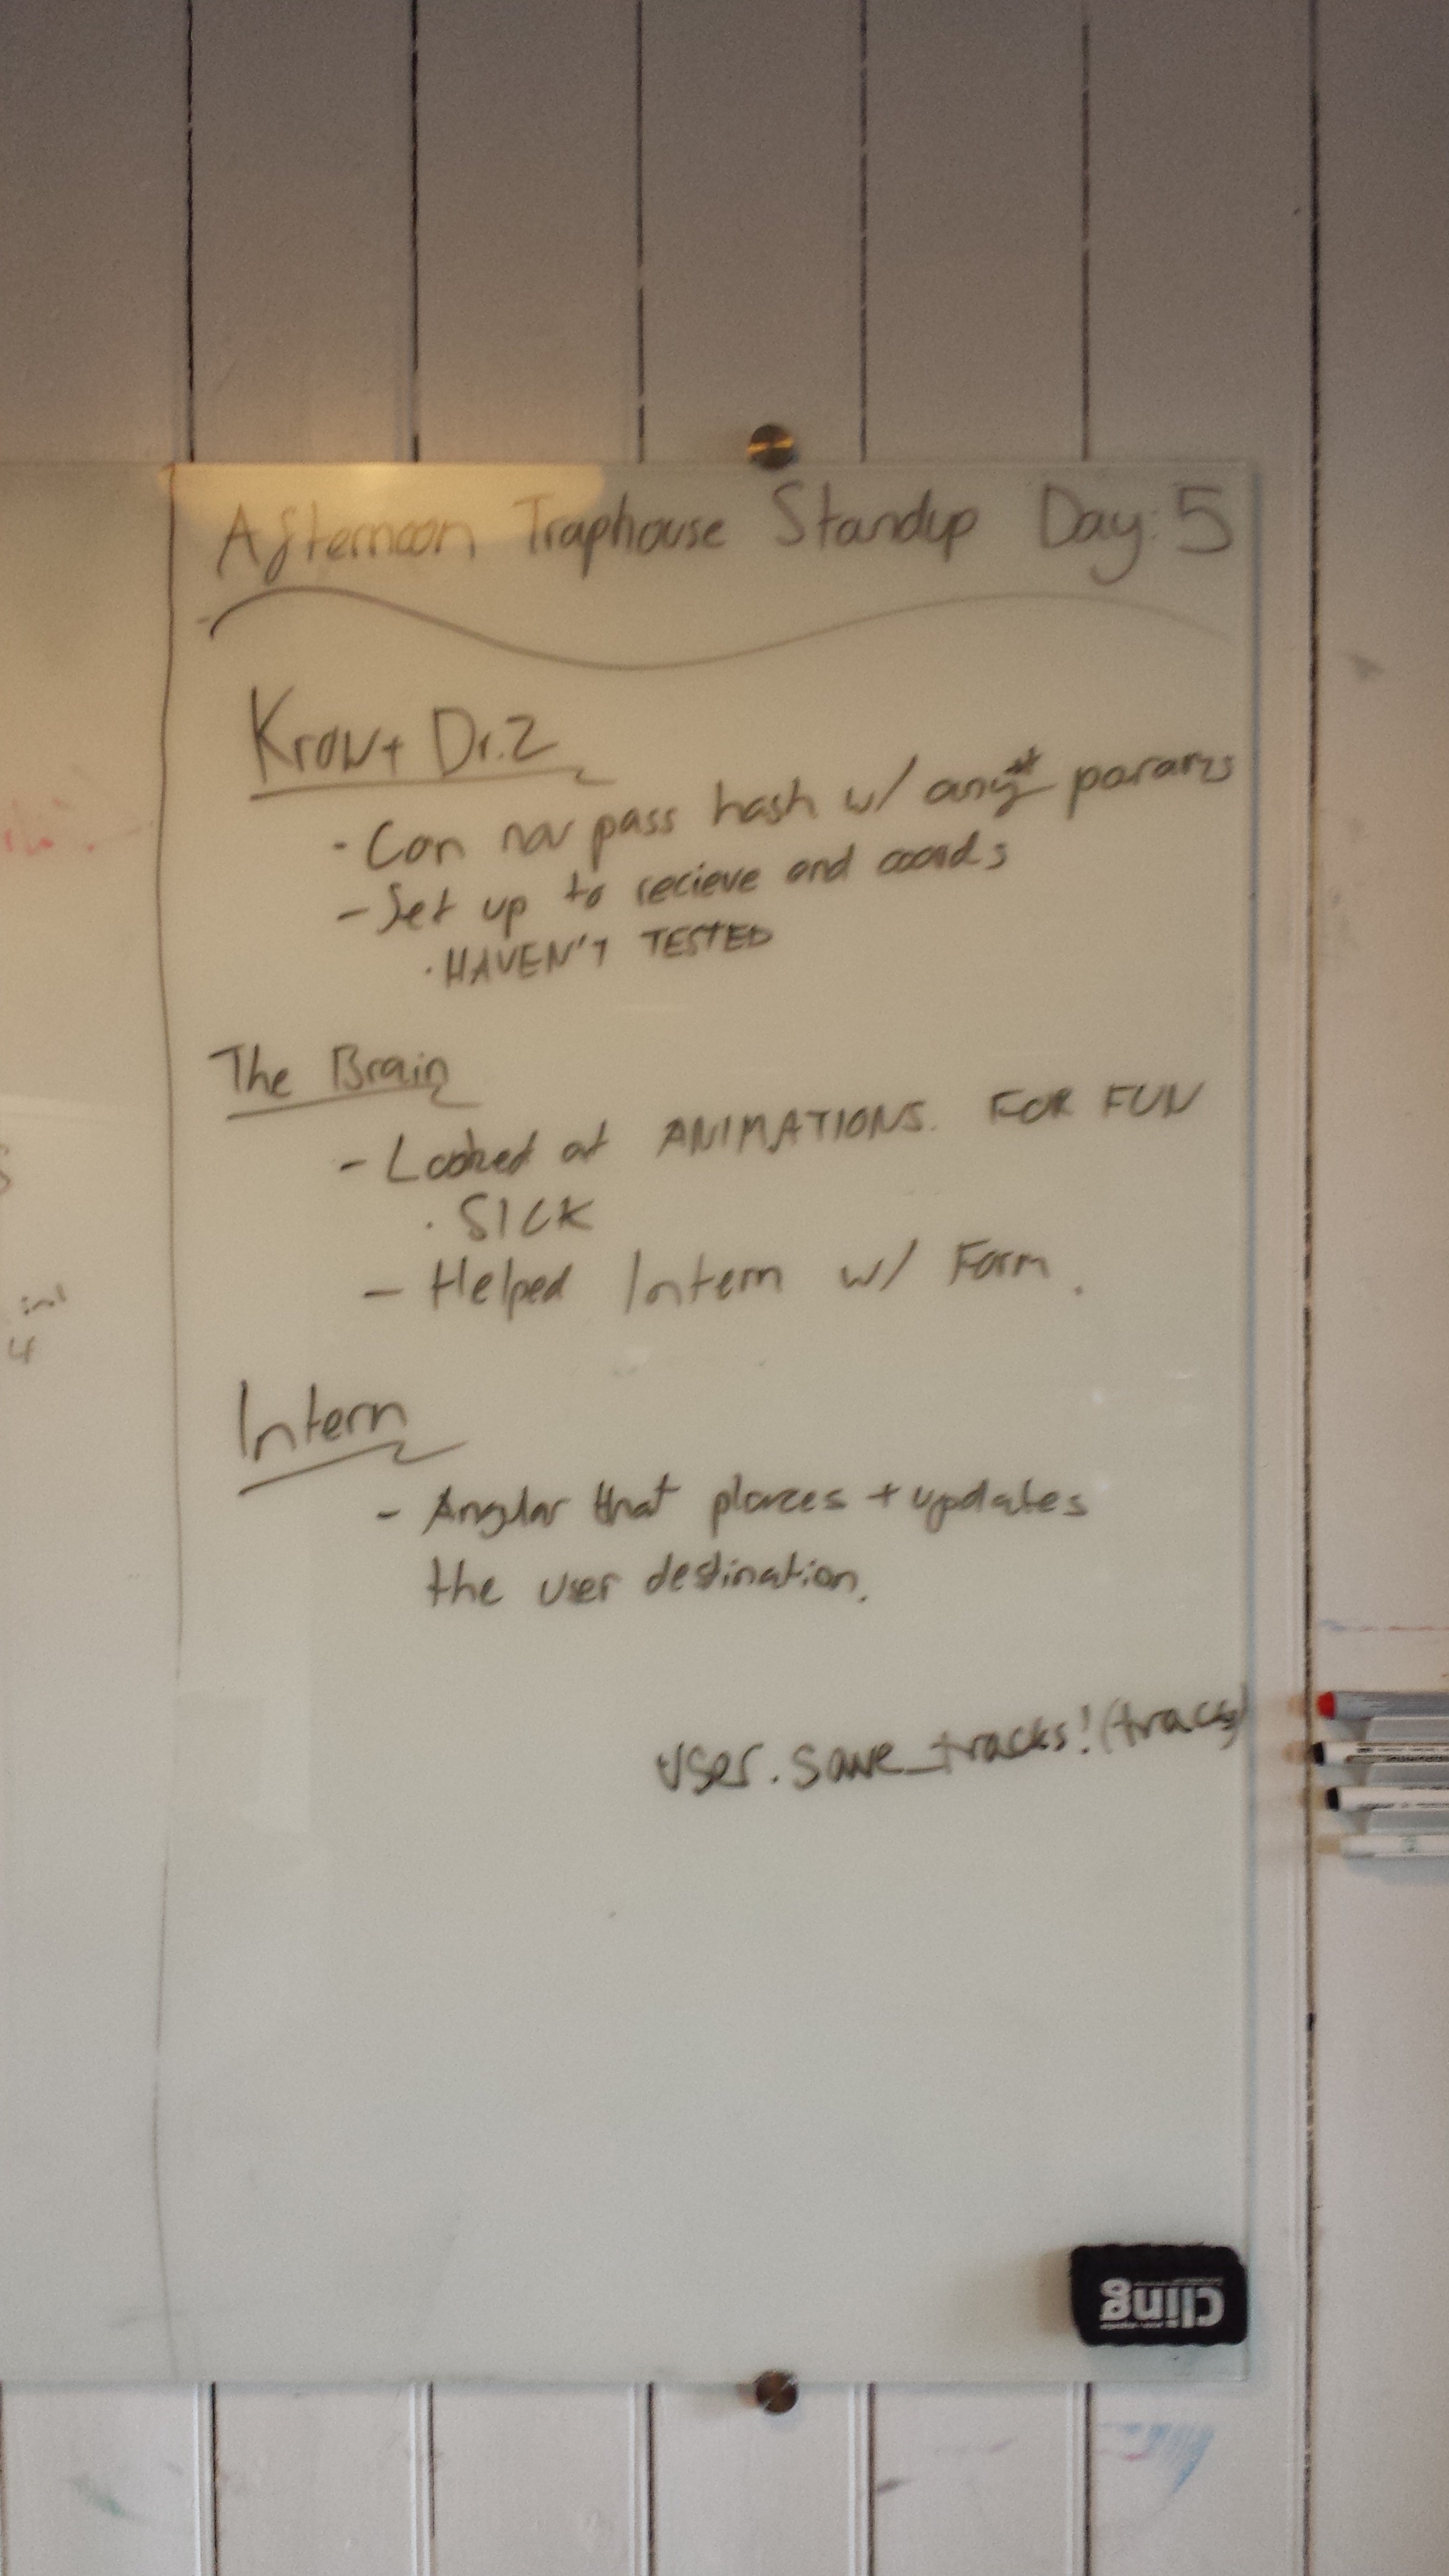 Afternoon Traphouse Standup Day: 5
Kron + Dr. Z
- Can now pass hash w/ any # params
- Set up to recieve end coords
. HAVEN'T TESTED
The Brain
- Looked at ANIMATIONS. FOR FUN
. SICK
- Helped Intern w/ Form.
Intern
- Angular that places + updates
the user destination.
user.save_tracks!(tracks)
Cling